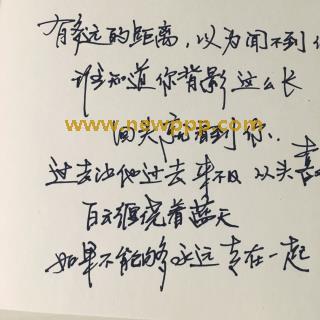 有多远的距离，以为闻不到
谁知道你背影这么长
www.newppp.com
回头就看到你
过去让他过去 来不及 从头喜
白云缠绕着蓝天
如果不能够永远走在一起